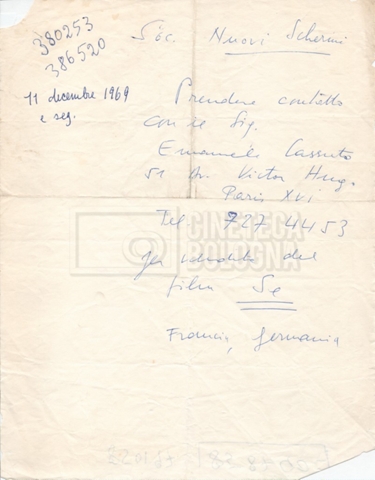 380253
386520
Soc. Nuovi Schermi
11 decembre 1969
e seg.
Prendere contatto
con il Sig.
Emanuele Cassuto
51 Av. Victor Hugo
Paris XVI
Tel 727 4453
per vendita del
film Se
Francia, Germania
CINETECA
BOLOGNA